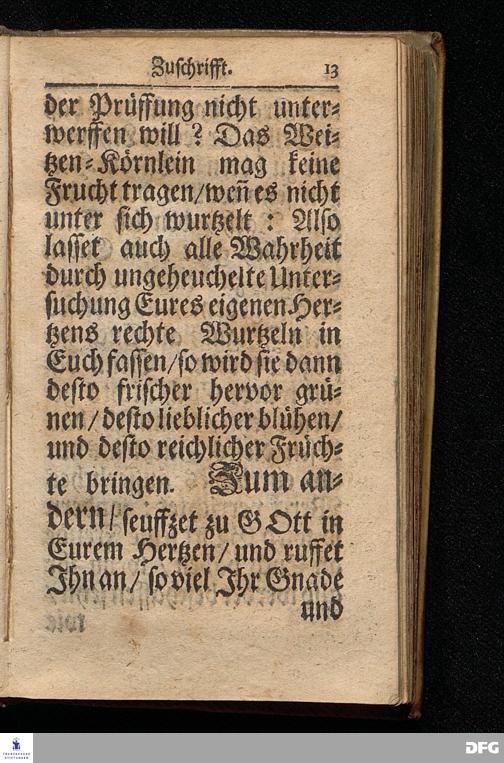 Zuschrifft. 13
der Prüffung nicht unter-
werffen will? Das Wei-
tzen-Körnlein mag keine
Frucht tragen/weñ es nicht
unter sich wurtzelt : Also
lasset auch alle Wahrheit
durch ungeheuchelte Unter-
suchung Eures eigenen Her-
tzens rechte Wurtzeln in
Euch fassen/so wird sie dann
desto frischer hervor grü-
nen/desto lieblicher blühen/
und desto reichlicher Früch-
te bringen. Zum an-
dern/seuffzet zu GOtt in
Eurem Hertzen/und ruffet
Ihn an/so viel Ihr Gnade
und
FRANCKESCHE
STIFTUNGEN
DFG